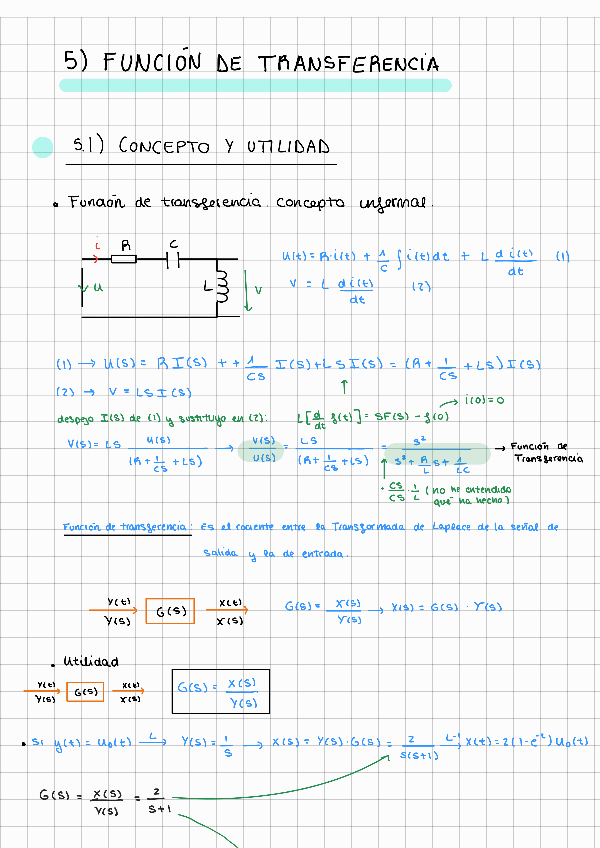 5) FUNCIÓN DE TRANSFERENCIA
5.1) CONCEPTO Y UTILIDAD
• Función de transferencia. Concepto informal.
i R C
u L v
U(t) = R·i(t) + 1/C ∫ i(t)dt + L d i(t)/dt (1)
V = L d i(t)/dt (2)
(1) → U(S) = R I(S) + + 1/CS I(S) + L S I(S) = (R + 1/CS + LS) I(S)
(2) → V = LS I(S)
despejo I(S) de (1) y sustituyo en (2): L[d/dt f(t)] = SF(S) - f(0) → i(0)=0
V(S) = LS U(S)/(R + 1/CS + LS) → V(S)/U(S) = LS/(R + 1/CS + LS) = S²/(S² + R/L S + 1/LC) → Función de Transferencia
· CS/CS · 1/L (no he entendido
qué ha hecho)
Función de transferencia: Es el cociente entre la Transformada de Laplace de la señal de
salida y la de entrada.
Y(t) Y(S) G(S) X(t) X(S) G(S) = X(S)/Y(S) → X(S) = G(S) · Y(S)
• Utilidad
Y(t) Y(S) G(S) X(t) X(S) G(S) = X(S)/Y(S)
• Si y(t) = U₀(t) L→ Y(S) = 1/S → X(S) = Y(S)·G(S) = 2/S(S+1) L⁻¹→ X(t) = 2(1-e⁻ᵗ) U₀(t)
G(S) = X(S)/Y(S) = 2/S+1